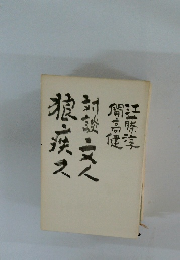 江藤淳
開高健
対談・文人
狼疾ス